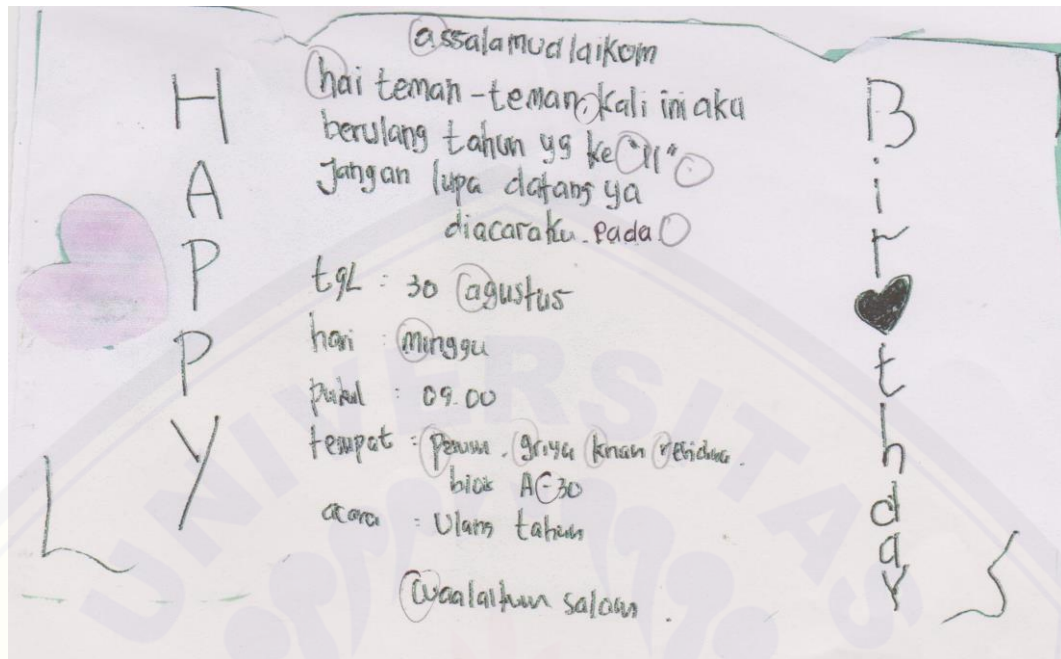 HAPPY
assalamualaikom
hai teman-teman, kali ini aku
berulang tahun yg ke "11".
Jangan lupa datang ya
diacaraku. Pada
tgL : 30 agustus
hari : minggu
pukul : 09.00
tempat : perum. griya
blok A-30
acara : Ulang tahun
waalaikum salam.
Birthday
L
S
UNIVERSITAS